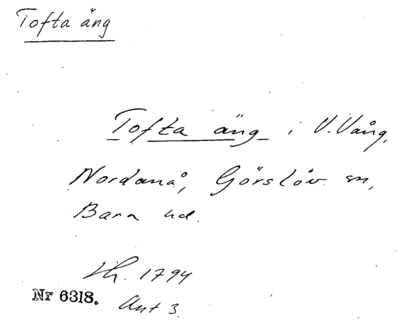 Tofta äng
Tofta äng i V. Vång,
Nordanå, Görslöv sn,
Bara hd.
Lh. 1794
Nr 6318.
Akt 3.